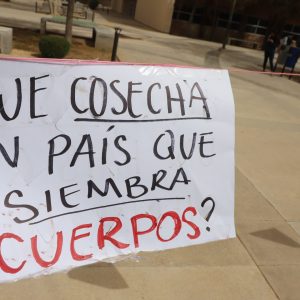 UE COSECHA
N PAÍS QUE
SIEMBRA
CUERPOS?